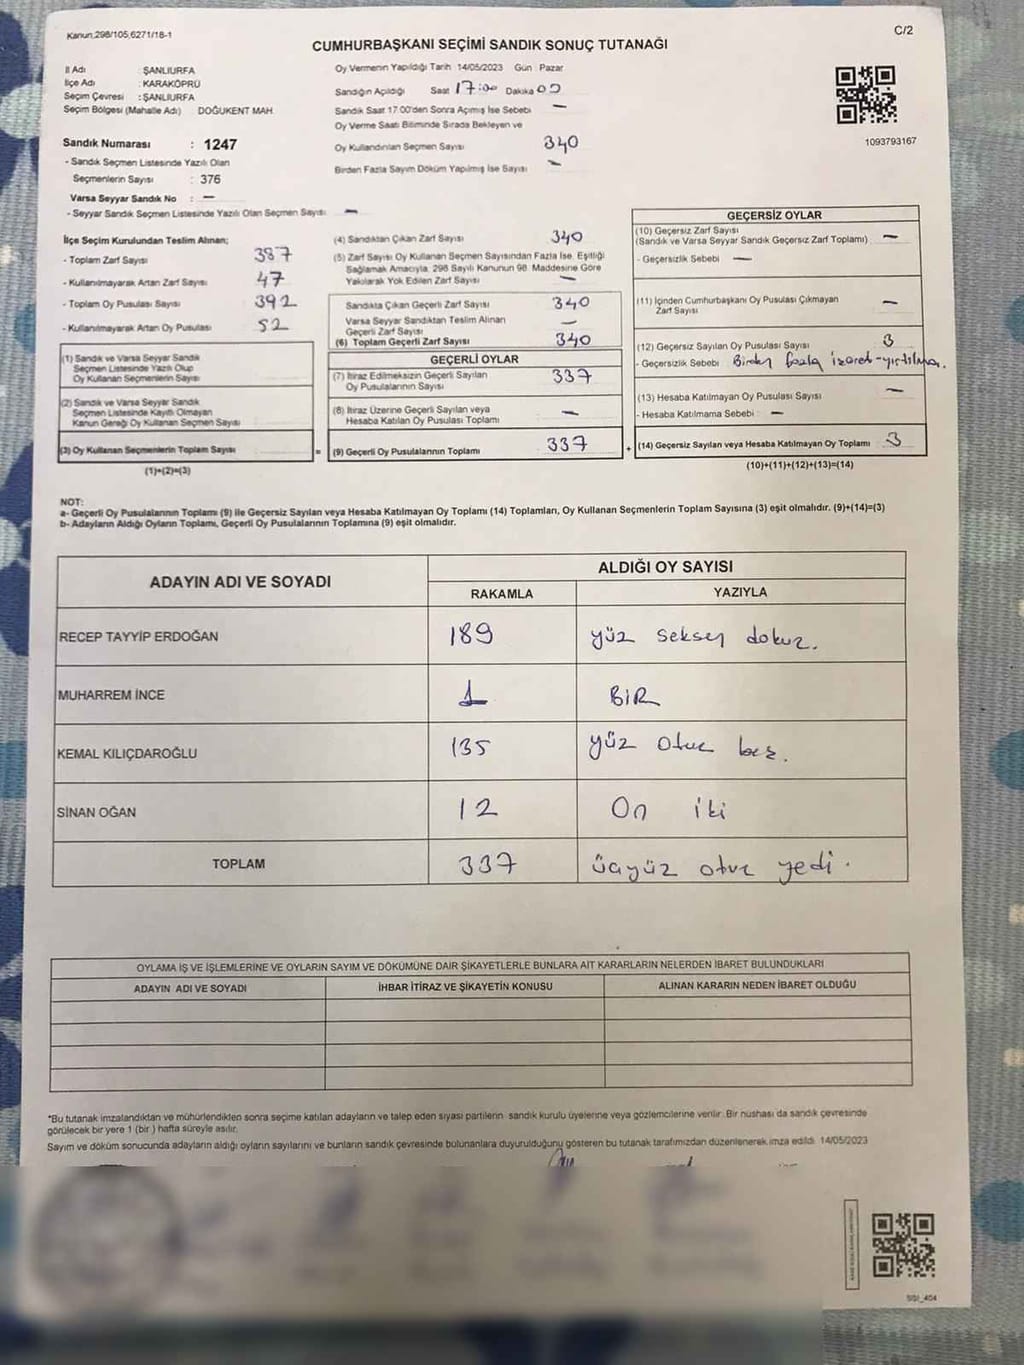 Kanun:298/105,6271/18-1
C/2
CUMHURBAŞKANI SEÇİMİ SANDIK SONUÇ TUTANAĞI
İl Adı : ŞANLIURFA
İlçe Adı : KARAKÖPRÜ
Seçim Çevresi : ŞANLIURFA
Seçim Bölgesi (Mahalle Adı) DOĞUKENT MAH.
Sandık Numarası : 1247
- Sandık Seçmen Listesinde Yazılı Olan
Seçmenlerin Sayısı : 376
Varsa Seyyar Sandık No : —
- Seyyar Sandık Seçmen Listesinde Yazılı Olan Seçmen Sayısı : —
Oy Vermenin Yapıldığı Tarih 14/05/2023 Gün : Pazar
Sandığın Açıldığı Saat 17:00 Dakika 00
Sandık Saat 17.00'den Sonra Açılmış İse Sebebi —
Oy Verme Saati Bitiminde Sırada Bekleyen ve
Oy Kullandırılan Seçmen Sayısı 340
Birden Fazla Sayım Döküm Yapılmış İse Sayısı —
1093793167
İlçe Seçim Kurulundan Teslim Alınan;
- Toplam Zarf Sayısı 387
- Kullanılmayarak Artan Zarf Sayısı 47
- Toplam Oy Pusulası Sayısı 392
- Kullanılmayarak Artan Oy Pusulası 52
(1) Sandık ve Varsa Seyyar Sandık
Seçmen Listesinde Yazılı Olup
Oy Kullanan Seçmenlerin Sayısı
(2) Sandık ve Varsa Seyyar Sandık
Seçmen Listesinde Kayıtlı Olmayan
Kanun Gereği Oy Kullanan Seçmen Sayısı
(3) Oy Kullanan Seçmenlerin Toplam Sayısı
(1)+(2)=(3)
(4) Sandıktan Çıkan Zarf Sayısı 340
(5) Zarf Sayısı Oy Kullanan Seçmen Sayısından Fazla İse, Eşitliği
Sağlamak Amacıyla, 298 Sayılı Kanunun 98. Maddesine Göre
Yakılarak Yok Edilen Zarf Sayısı —
Sandıkta Çıkan Geçerli Zarf Sayısı 340
Varsa Seyyar Sandıktan Teslim Alınan
Geçerli Zarf Sayısı —
(6) Toplam Geçerli Zarf Sayısı 340
GEÇERLİ OYLAR
(7) İtiraz Edilmeksizin Geçerli Sayılan
Oy Pusulalarının Sayısı 337
(8) İtiraz Üzerine Geçerli Sayılan veya
Hesaba Katılan Oy Pusulası Toplamı —
= (9) Geçerli Oy Pusulalarının Toplamı 337
GEÇERSİZ OYLAR
(10) Geçersiz Zarf Sayısı
(Sandık ve Varsa Seyyar Sandık Geçersiz Zarf Toplamı) —
- Geçersizlik Sebebi —
(11) İçinden Cumhurbaşkanı Oy Pusulası Çıkmayan
Zarf Sayısı —
(12) Geçersiz Sayılan Oy Pusulası Sayısı 3
- Geçersizlik Sebebi Birden fazla işaret-yırtılma.
(13) Hesaba Katılmayan Oy Pusulası Sayısı —
- Hesaba Katılmama Sebebi : —
+ (14) Geçersiz Sayılan veya Hesaba Katılmayan Oy Toplamı 3
(10)+(11)+(12)+(13)=(14)
NOT:
a- Geçerli Oy Pusulalarının Toplamı (9) ile Geçersiz Sayılan veya Hesaba Katılmayan Oy Toplamı (14) Toplamları, Oy Kullanan Seçmenlerin Toplam Sayısına (3) eşit olmalıdır. (9)+(14)=(3)
b- Adayların Aldığı Oyların Toplamı, Geçerli Oy Pusulalarının Toplamına (9) eşit olmalıdır.
ADAYIN ADI VE SOYADI ALDIĞI OY SAYISI
RAKAMLA YAZIYLA
RECEP TAYYİP ERDOĞAN 189 yüz seksen dokuz.
MUHARREM İNCE 1 BİR
KEMAL KILIÇDAROĞLU 135 yüz otuz beş.
SİNAN OĞAN 12 On iki
TOPLAM 337 üçyüz otuz yedi.
OYLAMA İŞ VE İŞLEMLERİNE VE OYLARIN SAYIM VE DÖKÜMÜNE DAİR ŞİKAYETLERLE BUNLARA AİT KARARLARIN NELERDEN İBARET BULUNDUKLARI
ADAYIN ADI VE SOYADI İHBAR İTİRAZ VE ŞİKAYETİN KONUSU ALINAN KARARIN NEDEN İBARET OLDUĞU
*Bu tutanak imzalandıktan ve mühürlendikten sonra seçime katılan adayların ve talep eden siyasi partilerin sandık kurulu üyelerine veya gözlemcilerine verilir. Bir nüshası da sandık çevresinde
görülecek bir yere 1 (bir ) hafta süreyle asılır.
Sayım ve döküm sonucunda adayların aldığı oyların sayılarını ve bunların sandık çevresinde bulunanlara duyurulduğunu gösteren bu tutanak tarafımızdan düzenlenerek imza edildi. 14/05/2023